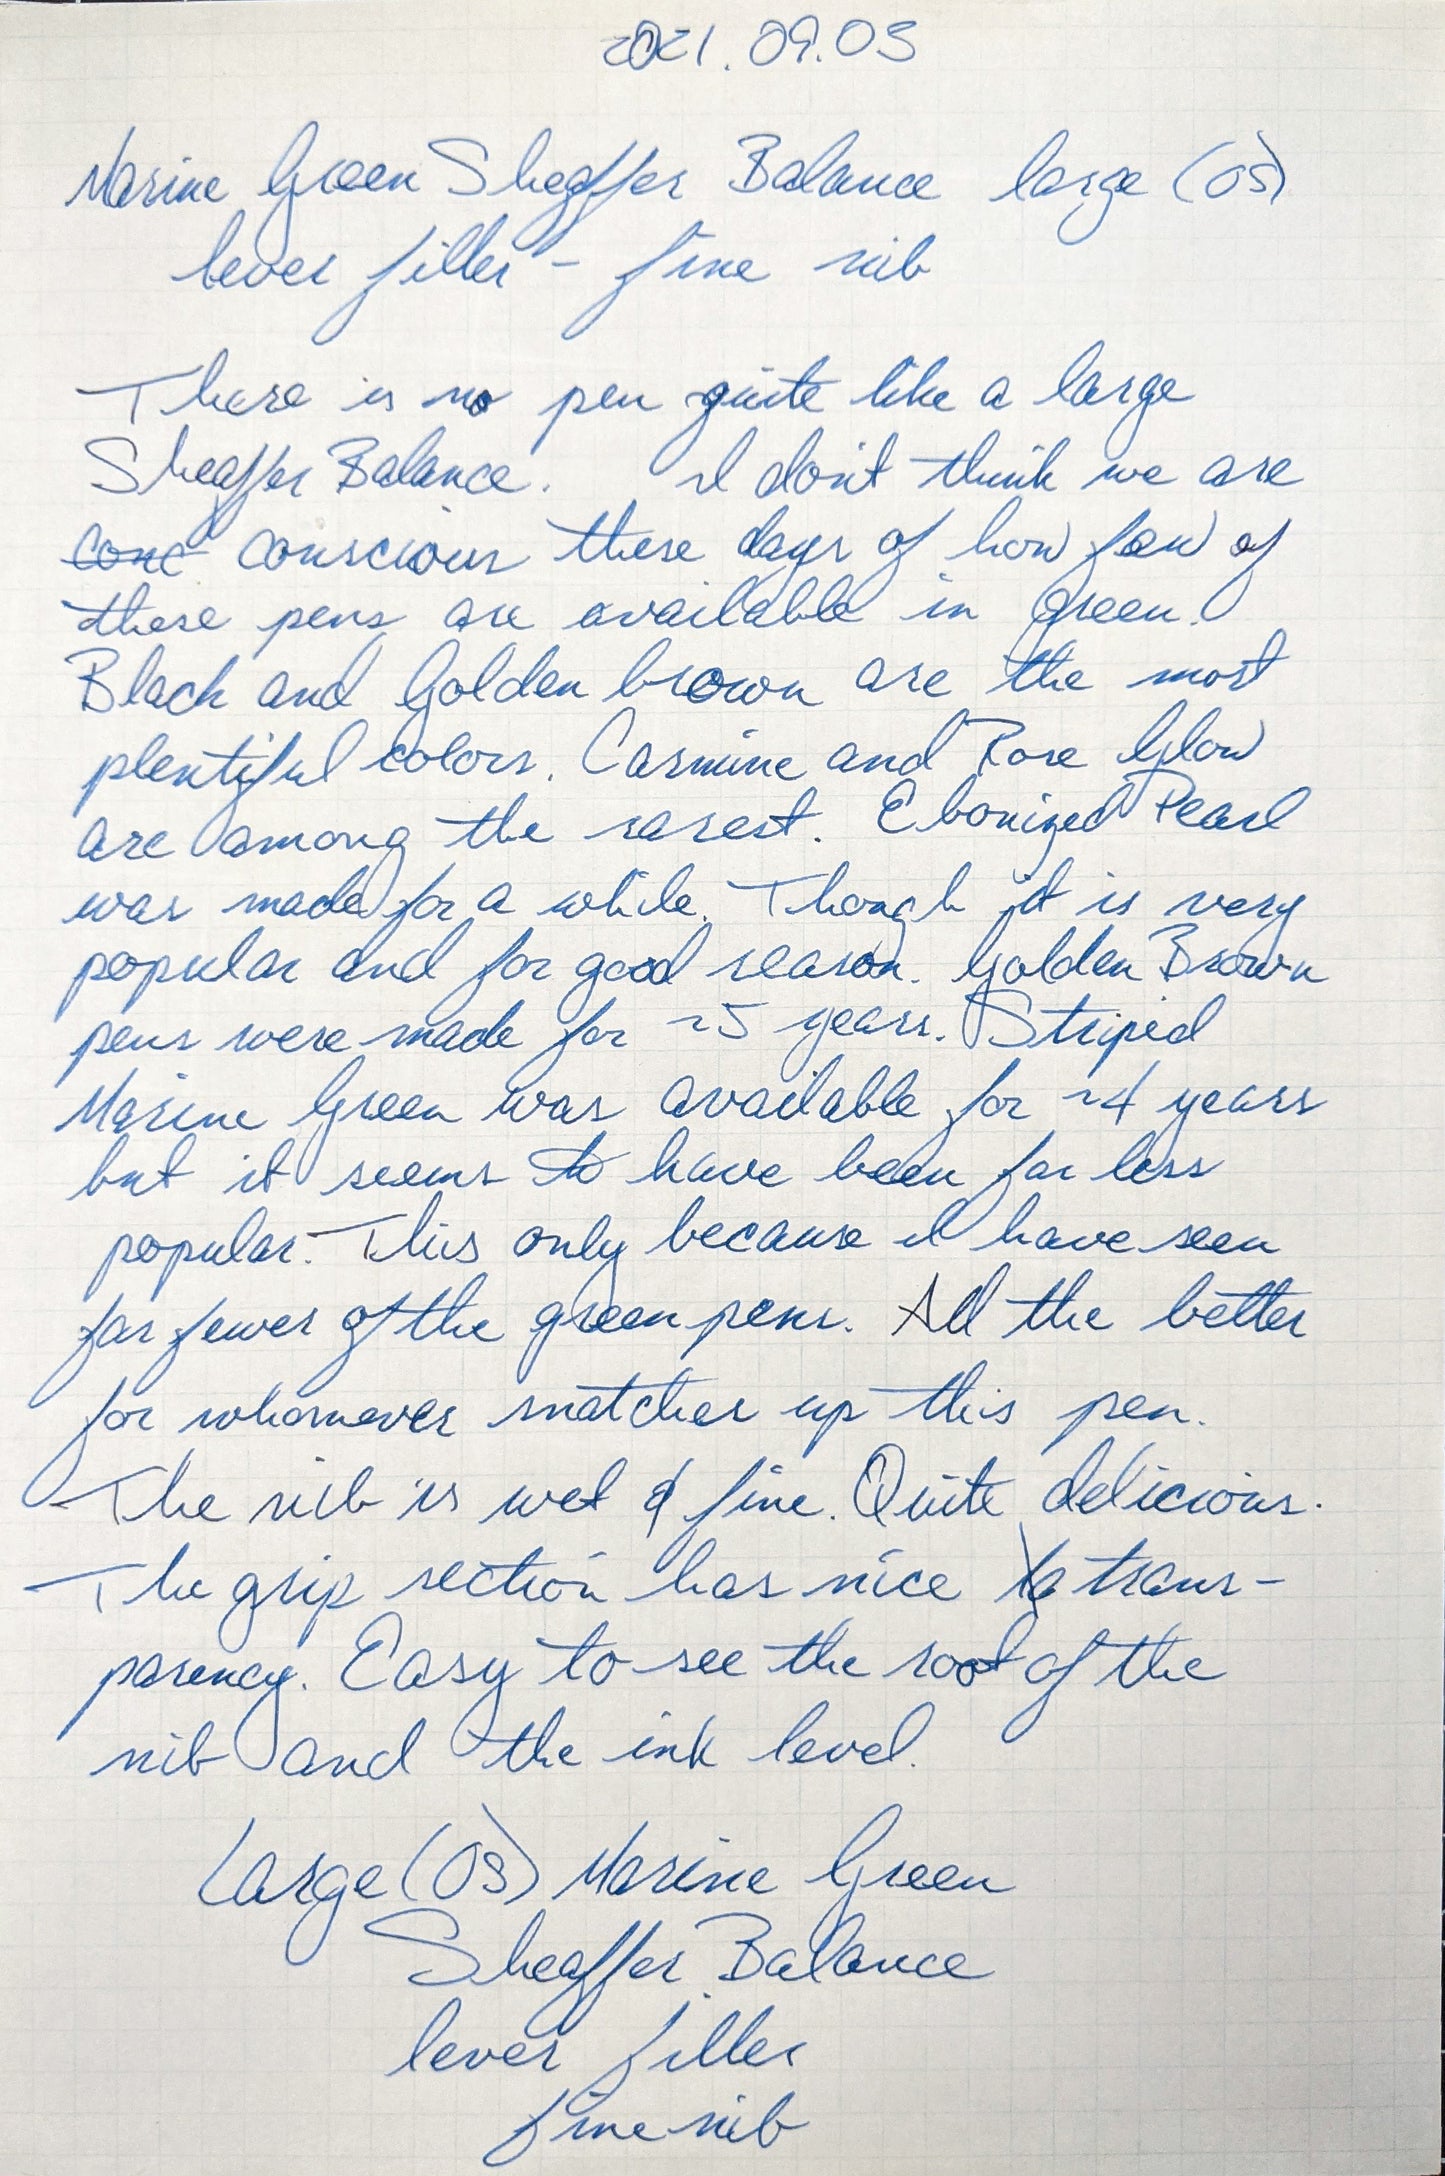 2021.09.03
Marine Green Sheaffer Balance large (OS)
lever filler - fine nib
There is no pen quite like a large
Sheaffer Balance. I don't think we are
conc conscious these days of how few of
these pens are available in green.
Black and Golden brown are the most
plentiful colors. Carmine and Rose Glow
are among the rarest. Ebonized Pearl
was made for a while. Though it is very
popular and for good reason. Golden Brown
pens were made for ~5 years. Striped
Marine Green was available for ~4 years
but it seems to have been far less
popular. This only because I have seen
far fewer of the green pens. All the better
for whomever snatches up this pen.
The nib is wet & fine. Quite delicious.
The grip section has nice trans-
parency. Easy to see the root of the
nib and the ink level.
Large (OS) Marine Green
Sheaffer Balance
lever filler
fine nib